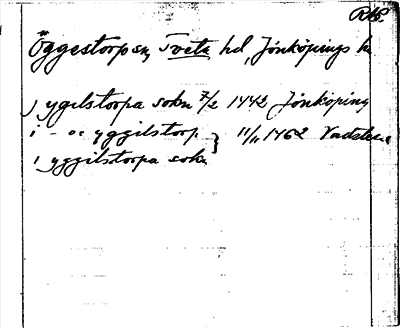 RAp.
Öggestorp sn, Tveta hd, Jönköpings l.
j ygilstorpa sokn 7/2 1442 Jönköping
i - oc yggilstorp } 11/11 1462 Vadstena
i yggilstorpa sokn